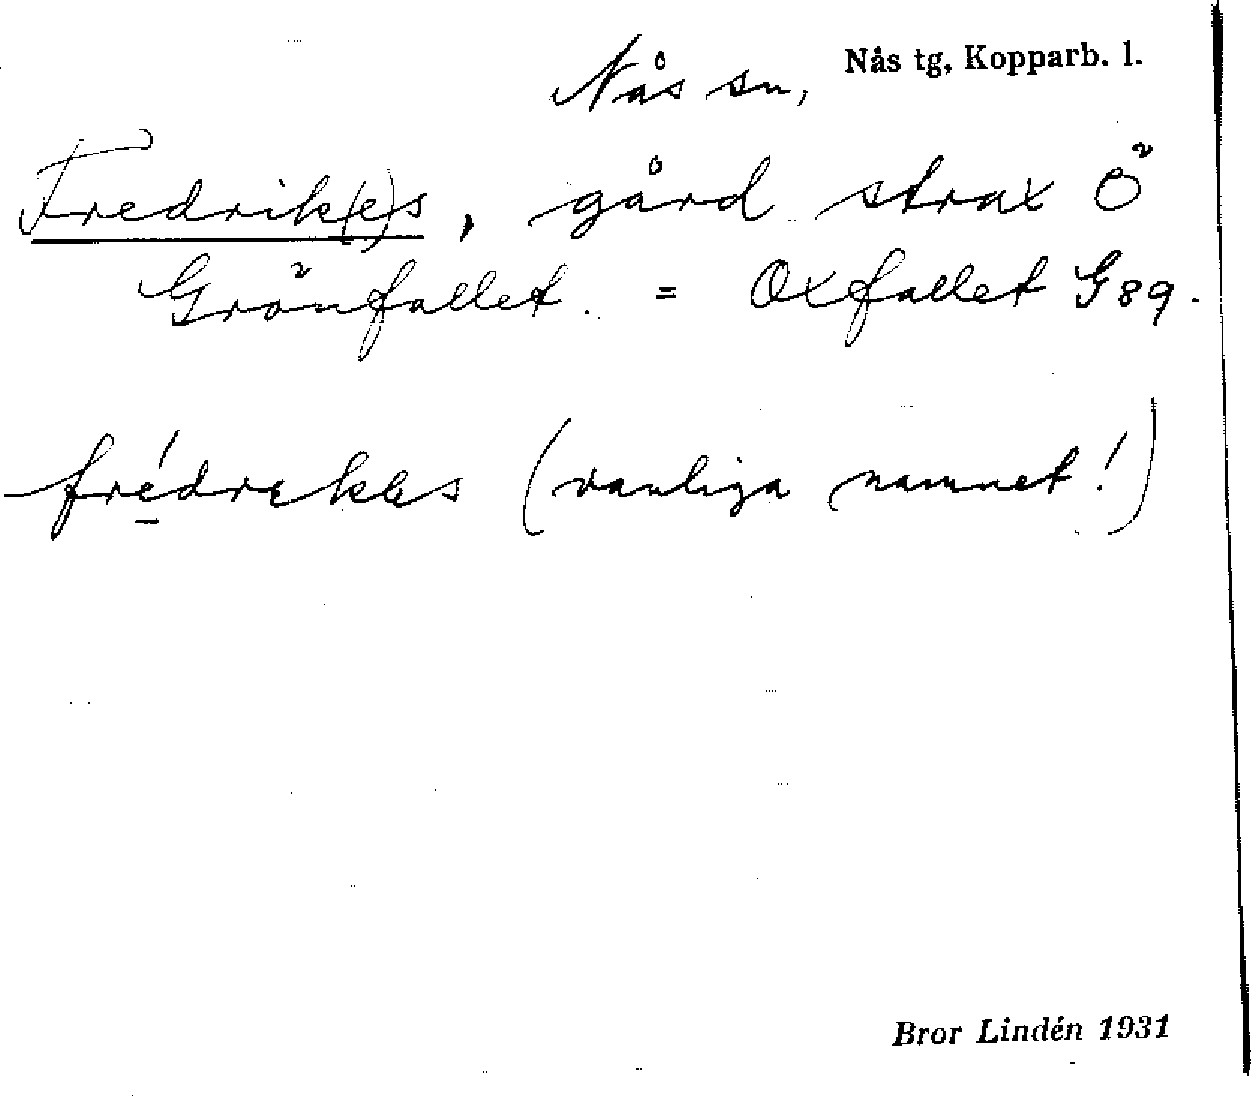 Nås sn, Nås tg, Kopparb. l.
Fredrik(e)s, gård strax Ö
Grönfallet. = Oxfallet G89.
frédrekes (vanliga namnet!)
Bror Lindén 1931